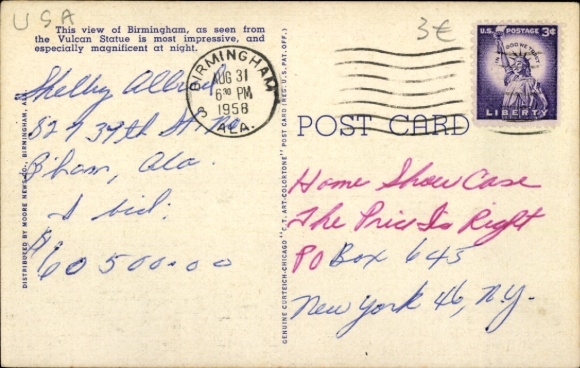 USA
3€
This view of Birmingham, as seen from
the Vulcan Statue is most impressive, and
especially magnificent at night.
BIRMINGHAM
AUG 31
6 30 PM
1958
ALA.
U.S. POSTAGE 3¢
IN GOD WE TRUST
LIBERTY
POST CARD
Shelby
827 39th St.
B'ham, Ala.
I bid:
$60500.00
Home Show Case
The Price Is Right
PO Box 645
New York 46, N.Y.
DISTRIBUTED BY MOORE NEWS CO., BIRMINGHAM, ALA.
GENUINE CURTEICH-CHICAGO "C.T. ART-COLORTONE" POST CARD (REG. U.S. PAT. OFF.)